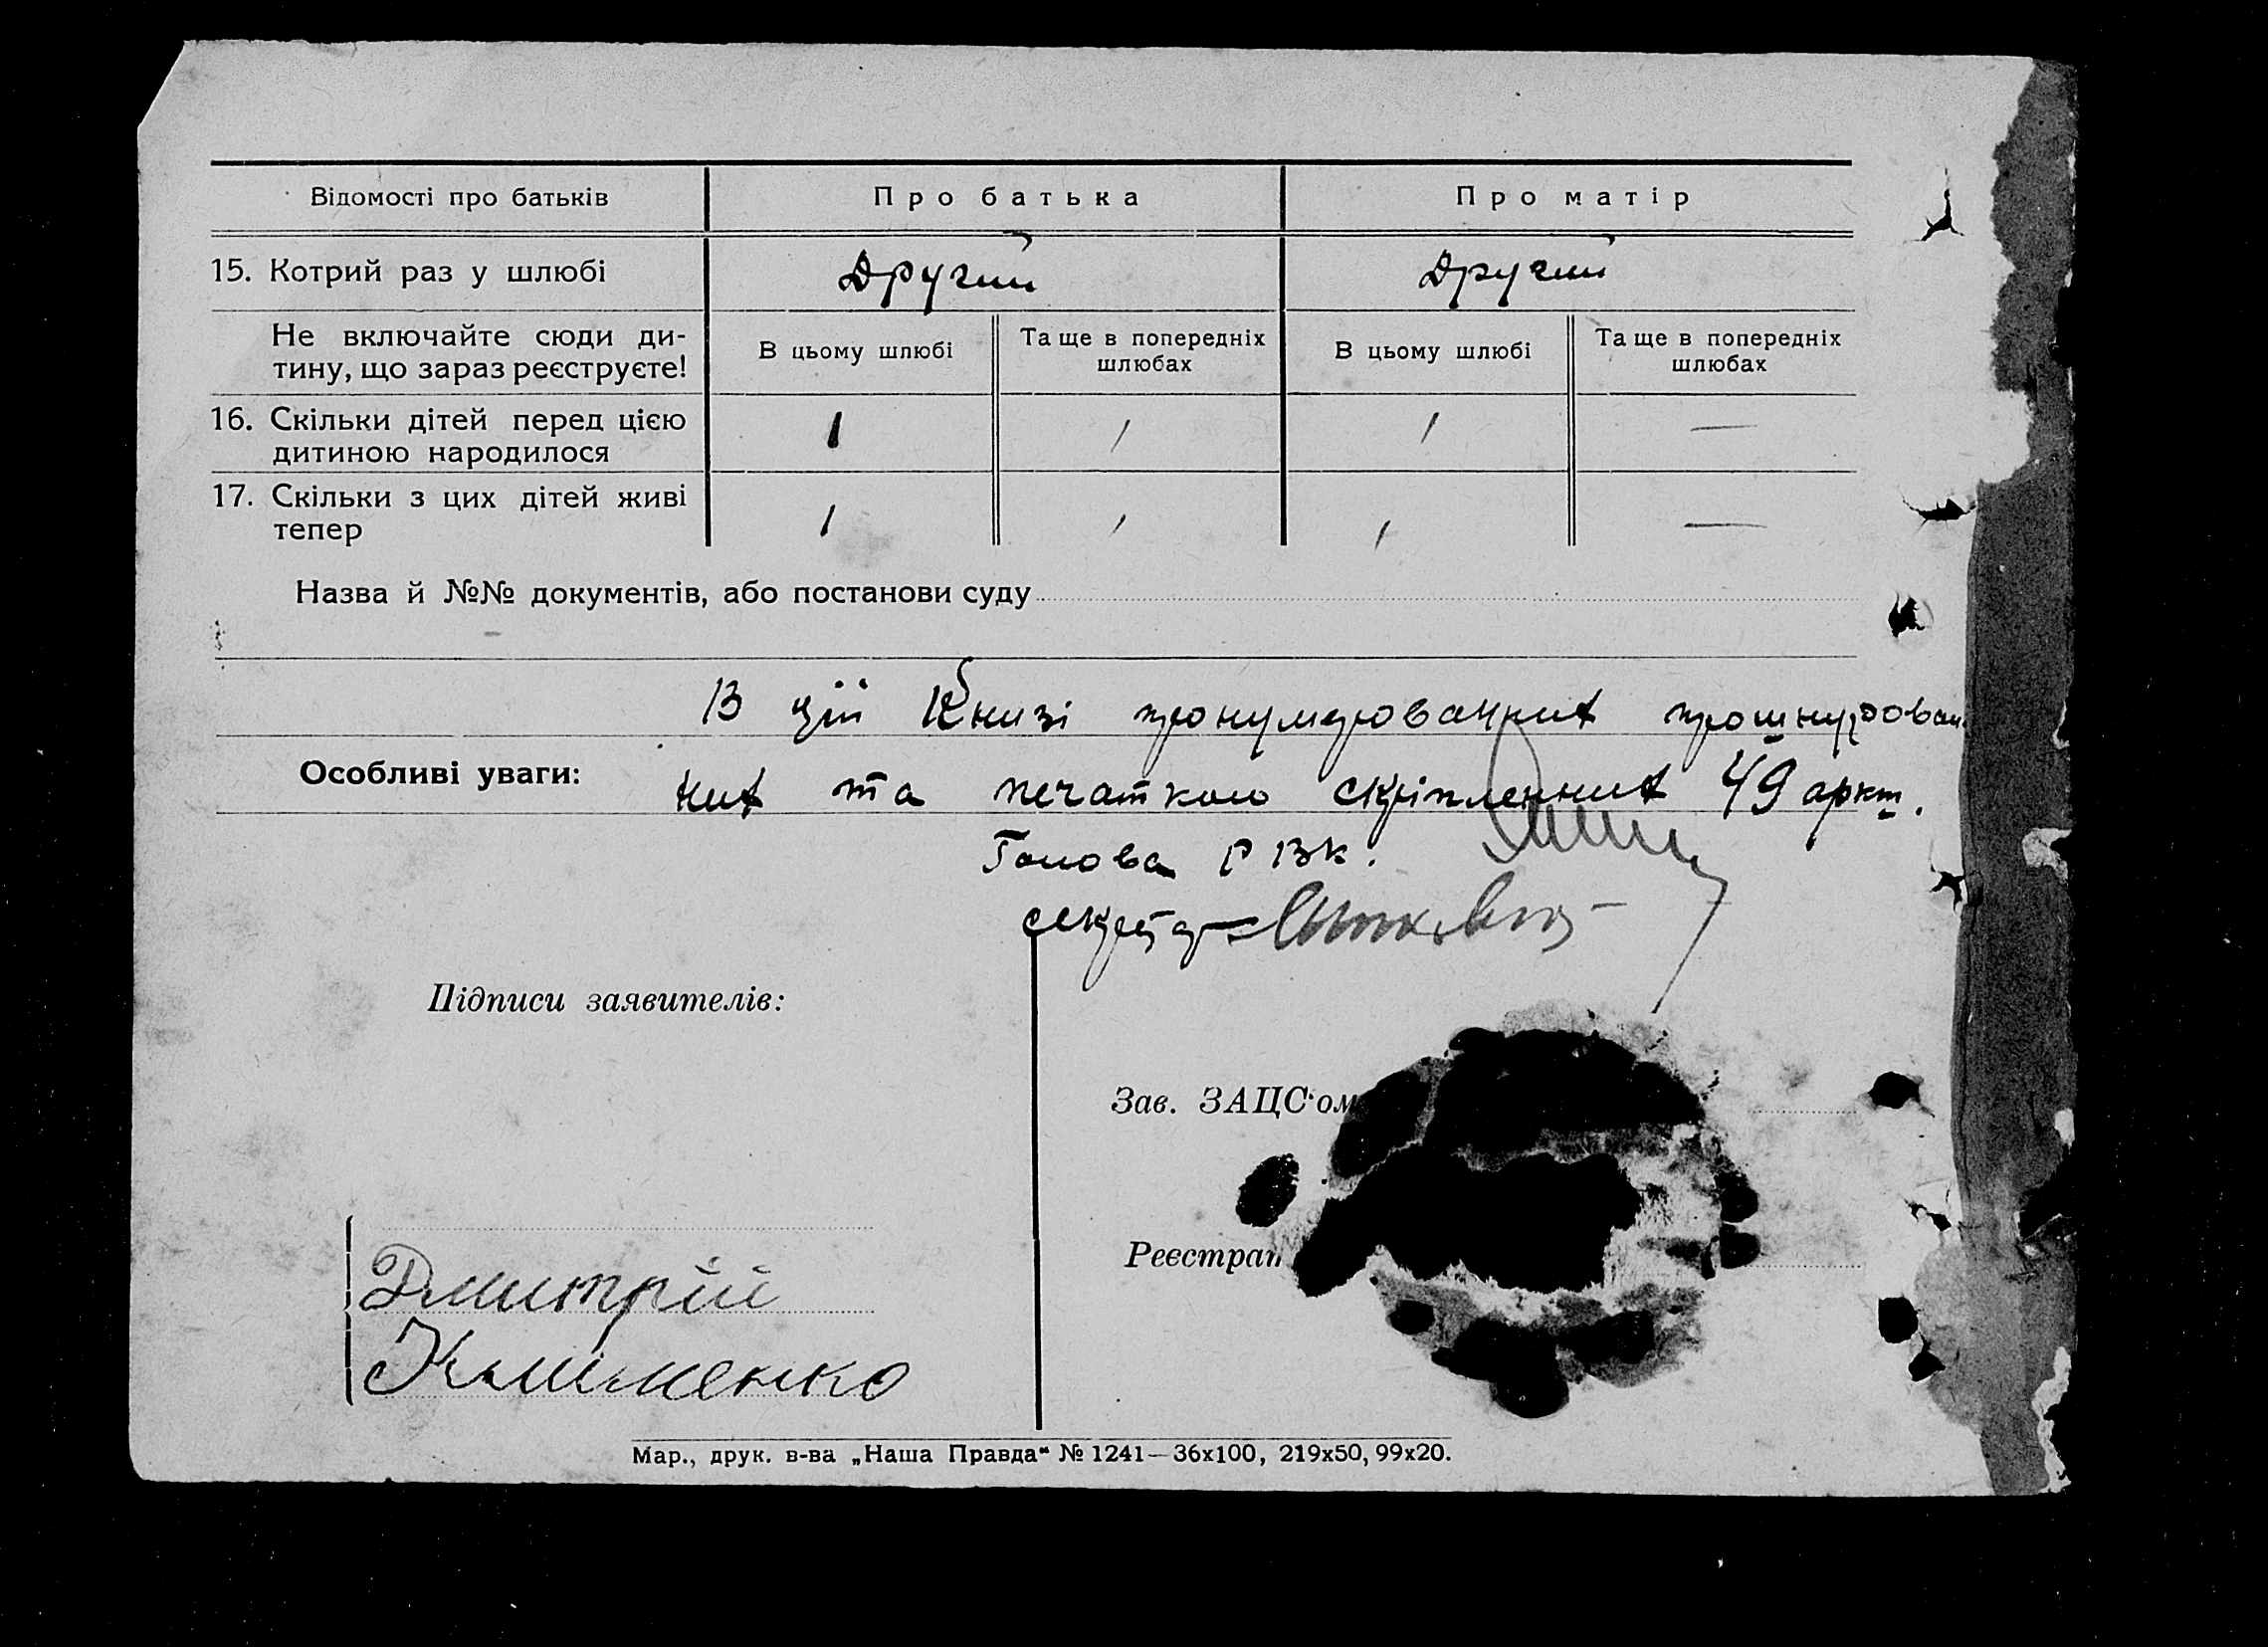 Відомості про батьків Про батька Про матір
15. Котрий раз у шлюбі Другий Другий
Не включайте сюди ди-
тину, що зараз реєструєте!
В цьому шлюбі Та ще в попередніх шлюбах В цьому шлюбі Та ще в попередніх шлюбах
16. Скільки дітей перед цією
дитиною народилося 1 1 1 —
17. Скільки з цих дітей живі
тепер 1 1 1 —
Назва й №№ документів, або постанови суду
В цій Книзі пронумерованних прошнурован
Особливі уваги:
них та печаткою скріпленних 49 аркш.
Голова РВК.
секретар
Підписи заявителів:
Зав. ЗАЦС'ом
Реєстрат
Дмитрій
Клименко
Мар., друк. в-ва „Наша Правда" № 1241—36х100, 219х50, 99х20.